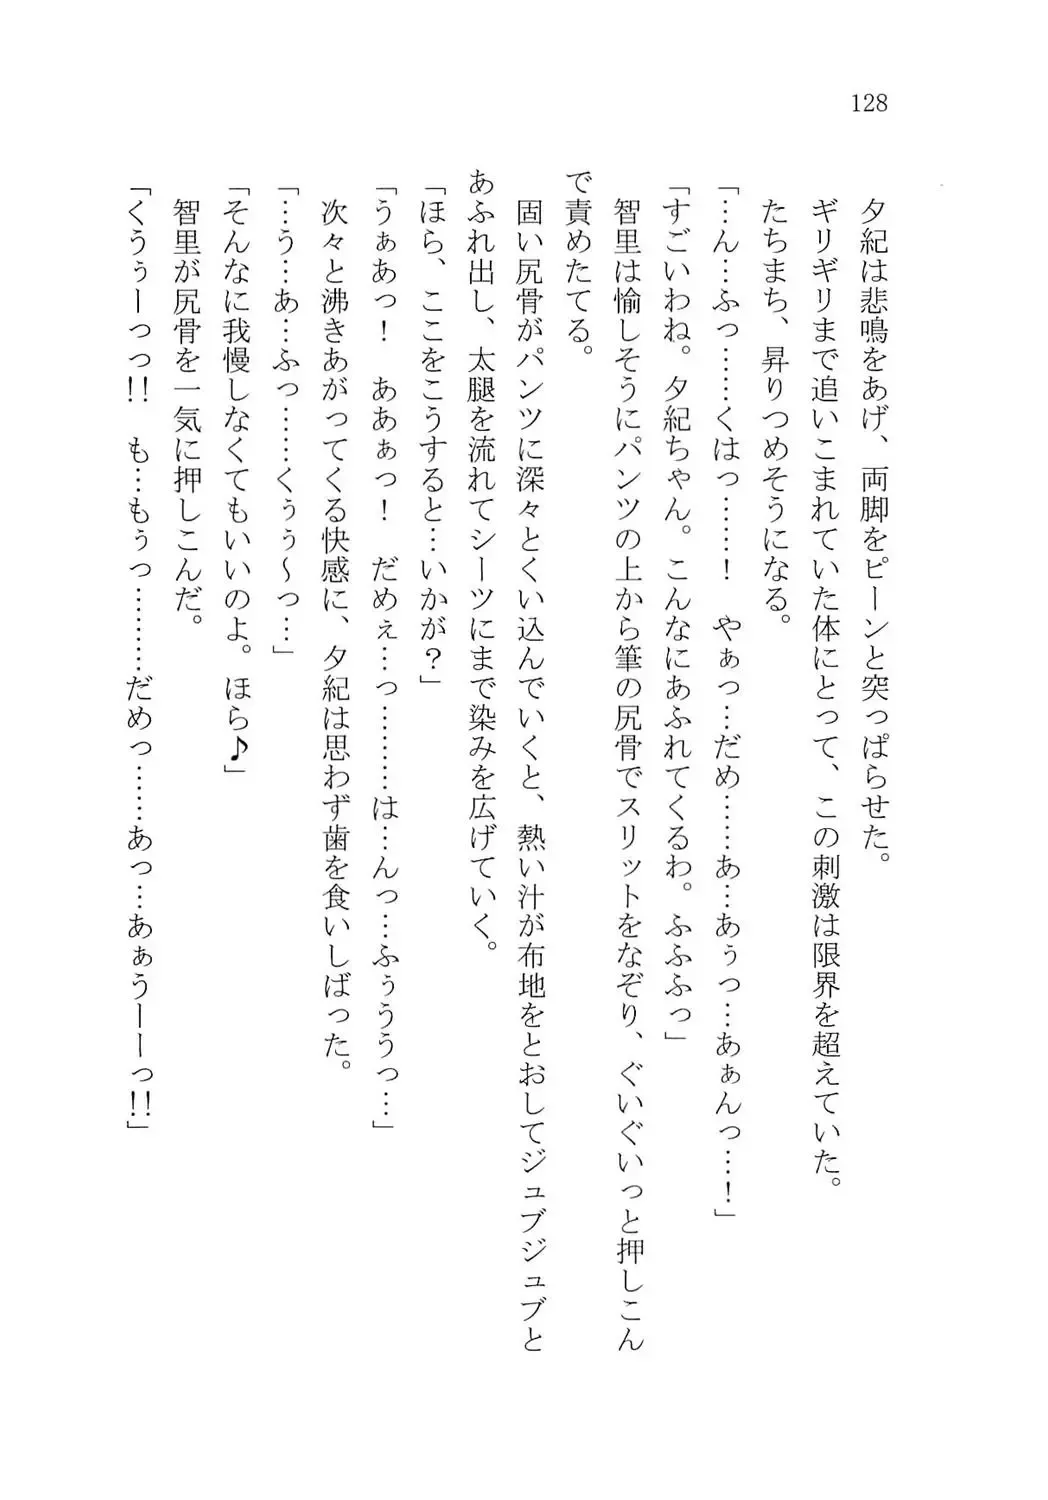 128
夕紀は悲鳴をあげ、両脚をピーンと突っぱらせた。
ギリギリまで追いこまれていた体にとって、この刺激は限界を超えていた。
たちまち、昇りつめそうになる。
「…ん…ふっ……くはっ……！　やぁっ…だめ……あ…あぅっ…あぁんっ…！」
「すごいわね。夕紀ちゃん。こんなにあふれてくるわ。ふふふっ」
智里は愉しそうにパンツの上から筆の尻骨でスリットをなぞり、ぐいぐいっと押しこん
で責めたてる。
固い尻骨がパンツに深々とくい込んでいくと、熱い汁が布地をとおしてジュブジュブと
あふれ出し、太腿を流れてシーツにまで染みを広げていく。
「ほら、ここをこうすると…いかが？」
「うぁあっ！　ああぁっ！　だめぇ…っ………は…んっ…ふぅううっ…」
次々と沸きあがってくる快感に、夕紀は思わず歯を食いしばった。
「…う…あ…ふっ……くぅぅ～っ…」
「そんなに我慢しなくてもいいのよ。ほら♪」
智里が尻骨を一気に押しこんだ。
「くうぅーっっ!!　も…もぅっ………だめっ……あっ…あぁうーーっ!!」